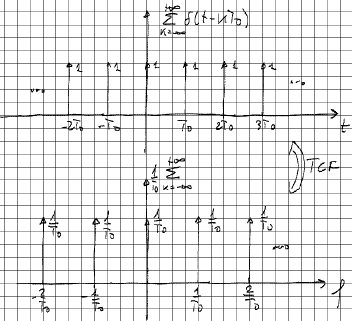 +∞
∑ δ(t-kT₀)
k=-∞
1 1 1 1 1 1
... ...
-2T₀ -T₀ T₀ 2T₀ 3T₀ t
TCF
1/T₀ +∞ ∑ k=-∞
1/T₀ 1/T₀ 1/T₀ 1/T₀ 1/T₀
...
-2/T₀ 1/T₀ 1/T₀ 2/T₀ f